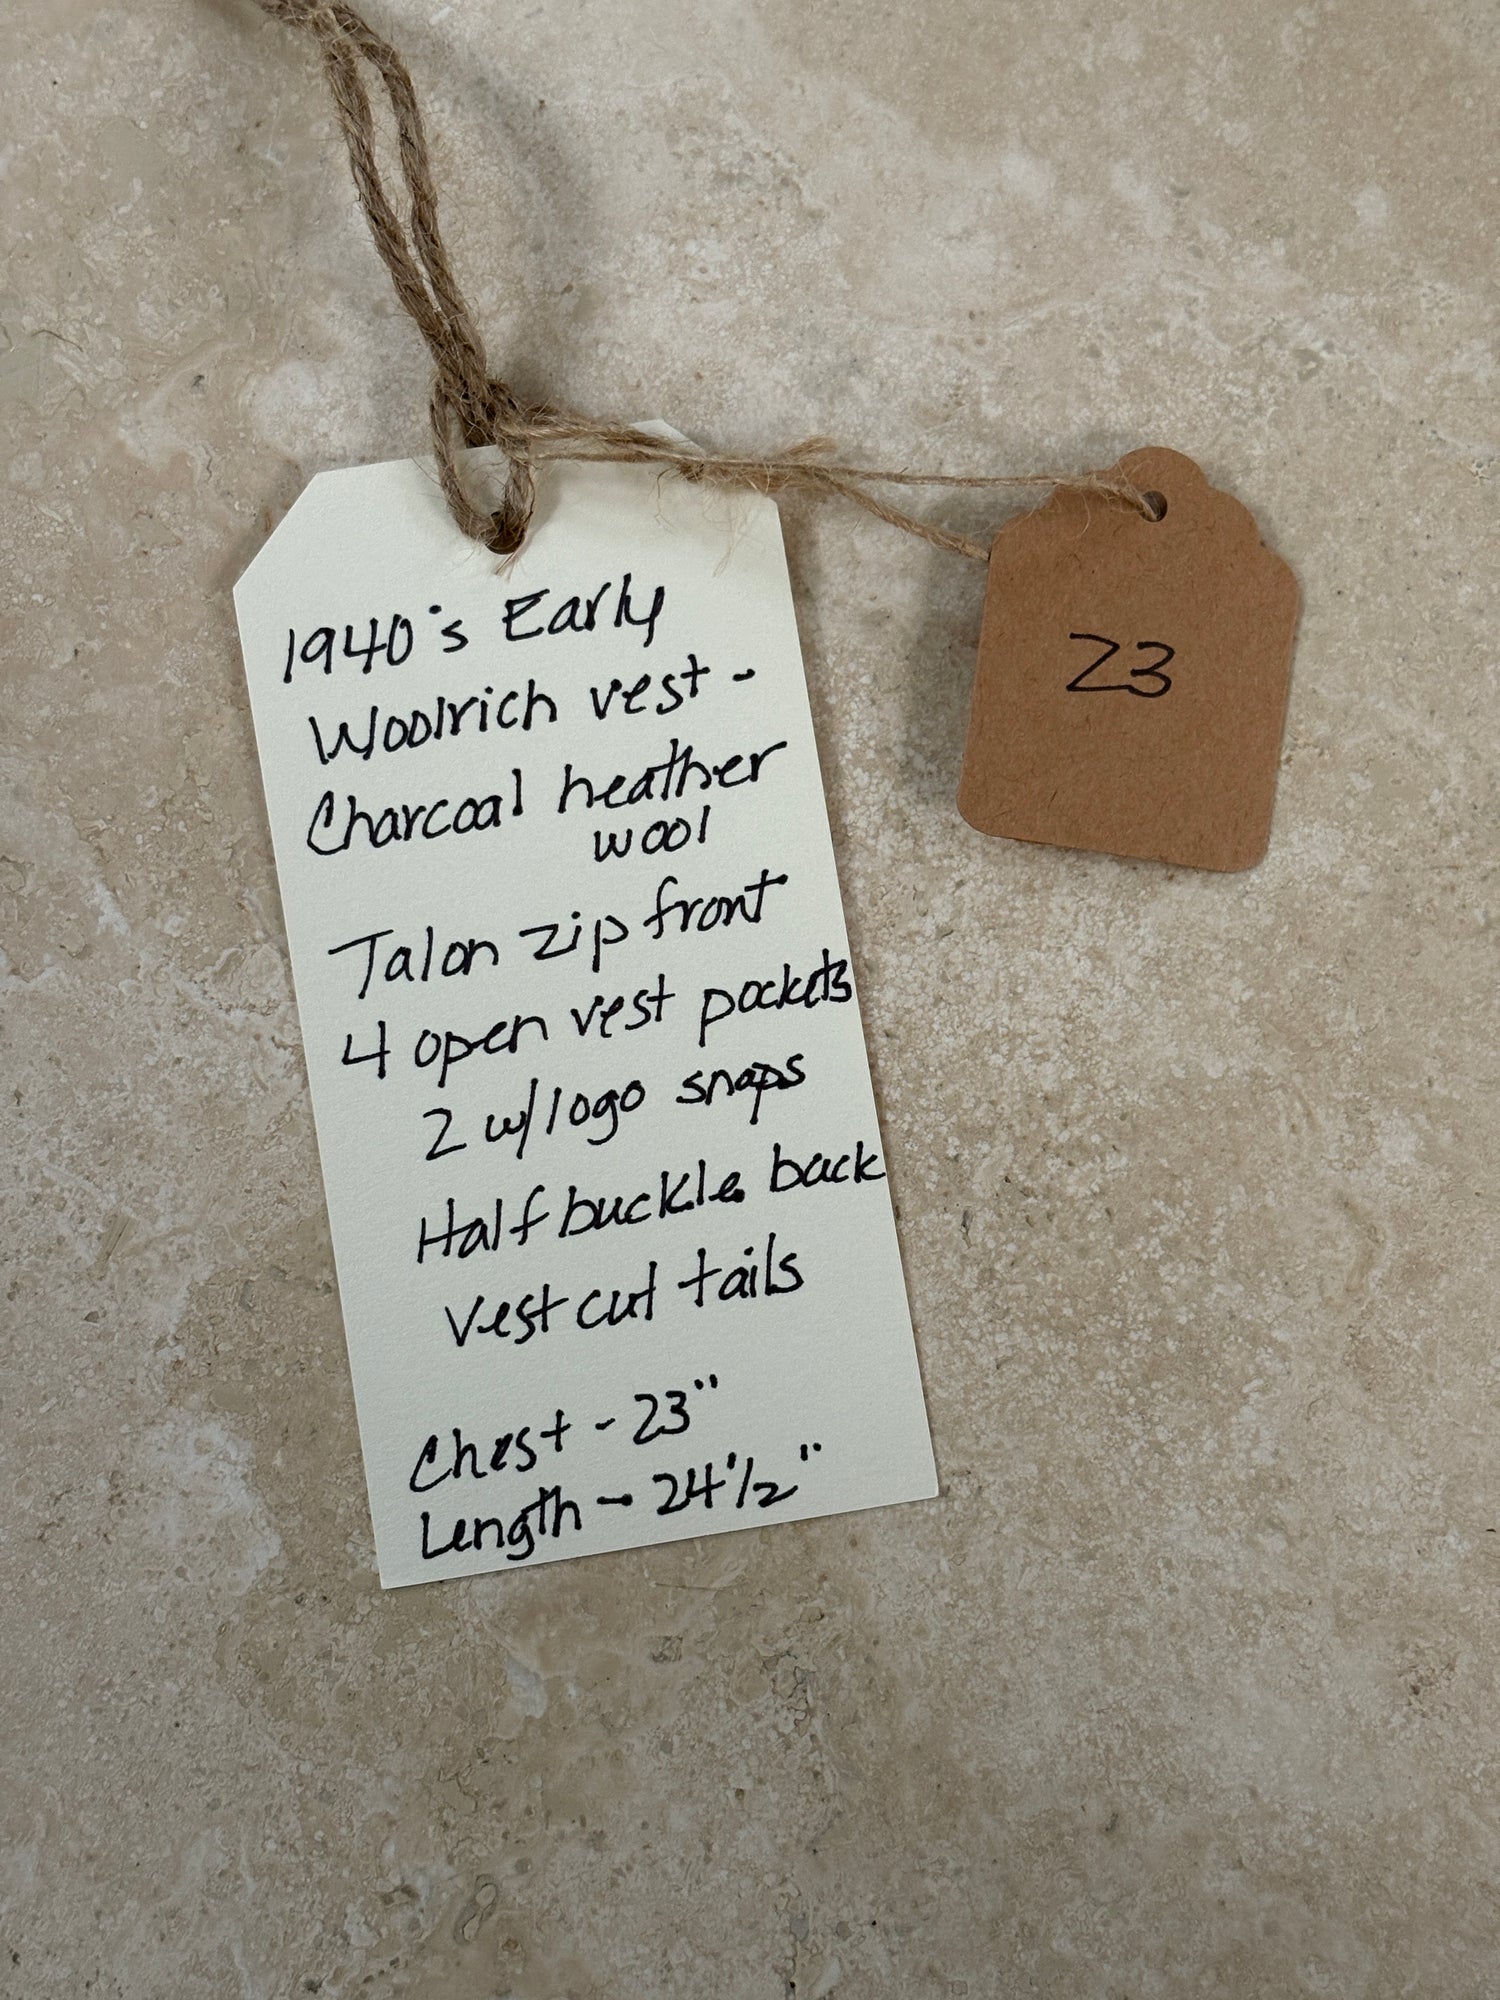 1940's Early
Woolrich vest -
Charcoal heather
wool
Talon zip front
4 open vest pockets
2 w/logo snaps
Half buckle back
Vest cut tails
Chest - 23"
Length - 24 1/2"
23